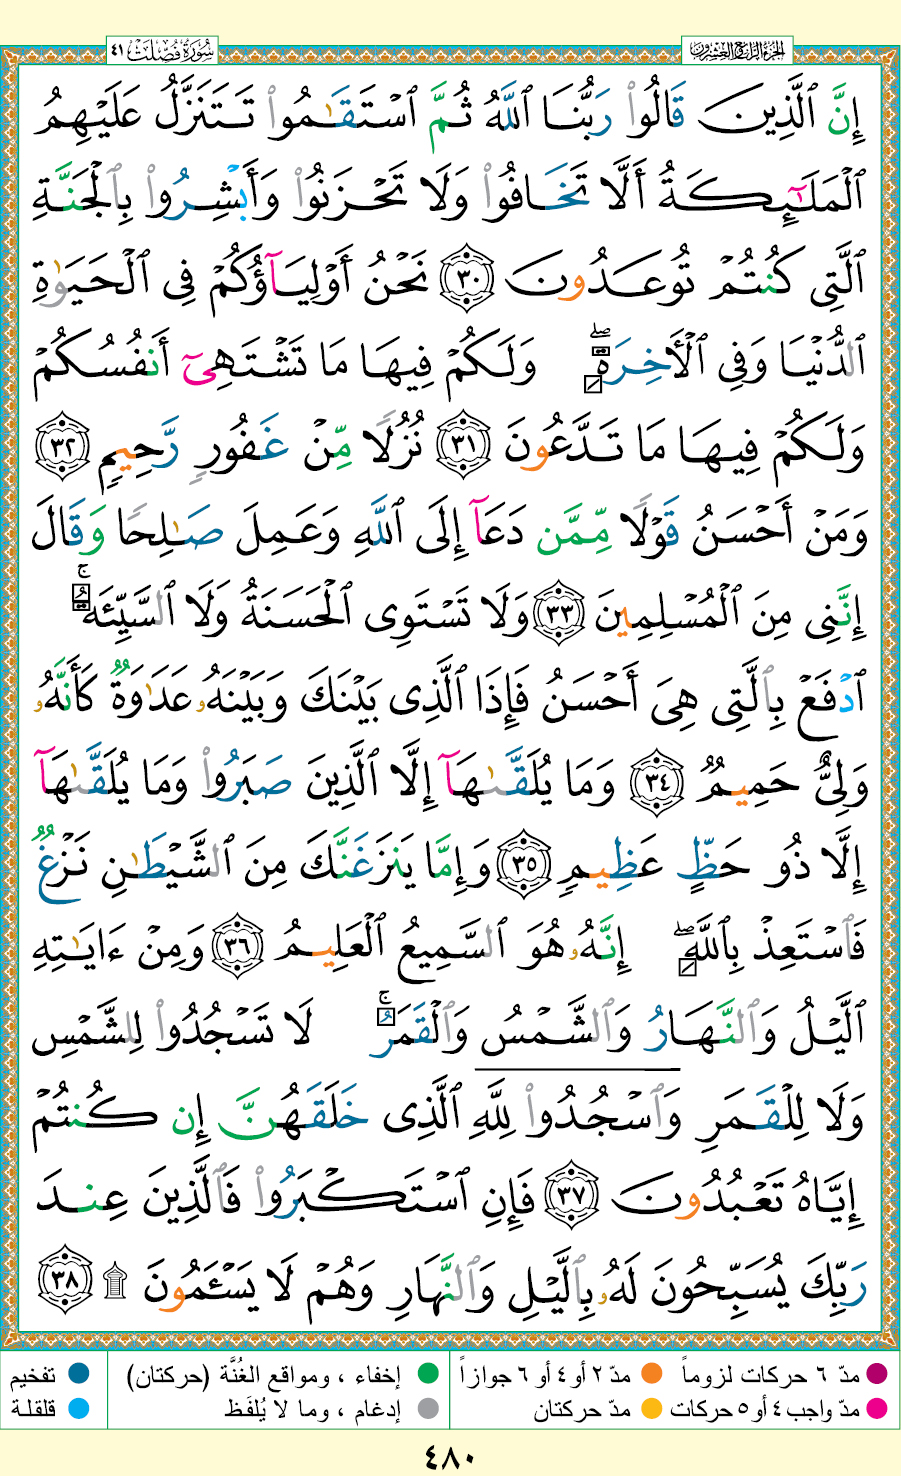 سُورَةُ فُصِّلَتْ ٤١
الجزء الرابع والعشرون
إِنَّ ٱلَّذِينَ قَالُوا۟ رَبُّنَا ٱللَّهُ ثُمَّ ٱسْتَقَـٰمُوا۟ تَتَنَزَّلُ عَلَيْهِمُ
ٱلْمَلَـٰٓئِكَةُ أَلَّا تَخَافُوا۟ وَلَا تَحْزَنُوا۟ وَأَبْشِرُوا۟ بِٱلْجَنَّةِ
ٱلَّتِى كُنتُمْ تُوعَدُونَ ٣٠ نَحْنُ أَوْلِيَآؤُكُمْ فِى ٱلْحَيَوٰةِ
ٱلدُّنْيَا وَفِى ٱلْأَخِرَةِ ۖ وَلَكُمْ فِيهَا مَا تَشْتَهِىٓ أَنفُسُكُمْ
وَلَكُمْ فِيهَا مَا تَدَّعُونَ ٣١ نُزُلًا مِّنْ غَفُورٍ رَّحِيمٍ ٣٢
وَمَنْ أَحْسَنُ قَوْلًا مِّمَّن دَعَآ إِلَى ٱللَّهِ وَعَمِلَ صَـٰلِحًا وَقَالَ
إِنَّنِى مِنَ ٱلْمُسْلِمِينَ ٣٣ وَلَا تَسْتَوِى ٱلْحَسَنَةُ وَلَا ٱلسَّيِّئَةُ ۚ
ٱدْفَعْ بِٱلَّتِى هِىَ أَحْسَنُ فَإِذَا ٱلَّذِى بَيْنَكَ وَبَيْنَهُۥ عَدَٰوَةٌ كَأَنَّهُۥ
وَلِىٌّ حَمِيمٌ ٣٤ وَمَا يُلَقَّىٰهَآ إِلَّا ٱلَّذِينَ صَبَرُوا۟ وَمَا يُلَقَّىٰهَآ
إِلَّا ذُو حَظٍّ عَظِيمٍ ٣٥ وَإِمَّا يَنزَغَنَّكَ مِنَ ٱلشَّيْطَـٰنِ نَزْغٌ
فَٱسْتَعِذْ بِٱللَّهِ ۖ إِنَّهُۥ هُوَ ٱلسَّمِيعُ ٱلْعَلِيمُ ٣٦ وَمِنْ ءَايَـٰتِهِ
ٱلَّيْلُ وَٱلنَّهَارُ وَٱلشَّمْسُ وَٱلْقَمَرُ ۚ لَا تَسْجُدُوا۟ لِلشَّمْسِ
وَلَا لِلْقَمَرِ وَٱسْجُدُوا۟ لِلَّهِ ٱلَّذِى خَلَقَهُنَّ إِن كُنتُمْ
إِيَّاهُ تَعْبُدُونَ ٣٧ فَإِنِ ٱسْتَكْبَرُوا۟ فَٱلَّذِينَ عِندَ
رَبِّكَ يُسَبِّحُونَ لَهُۥ بِٱلَّيْلِ وَٱلنَّهَارِ وَهُمْ لَا يَسْـَٔمُونَ ۩ ٣٨
مدّ ٦ حركات لزوماً مدّ ٢ أو ٤ أو ٦ جوازاً إخفاء ، ومواقع الغُنَّة (حركتان) تفخيم
مدّ واجب ٤ أو ٥ حركات مدّ حركتان إدغام ، وما لا يُلفَظ قلقلة
٤٨٠